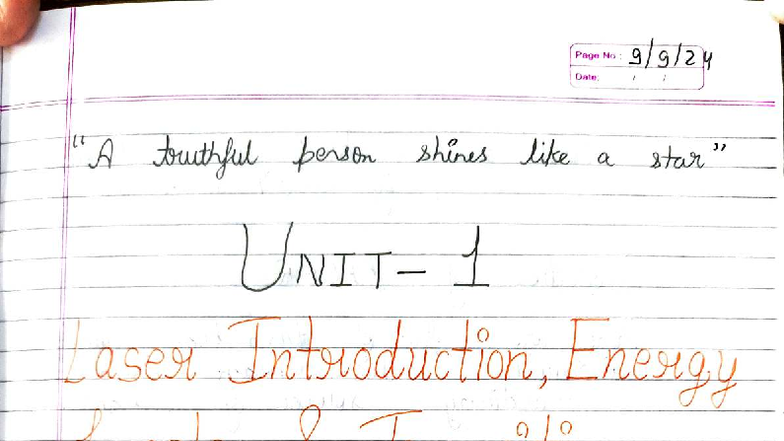 Page No: 9/9/24
Date: / /
"A truthful person shines like a star"
UNIT- 1
Laser Introduction, Energy